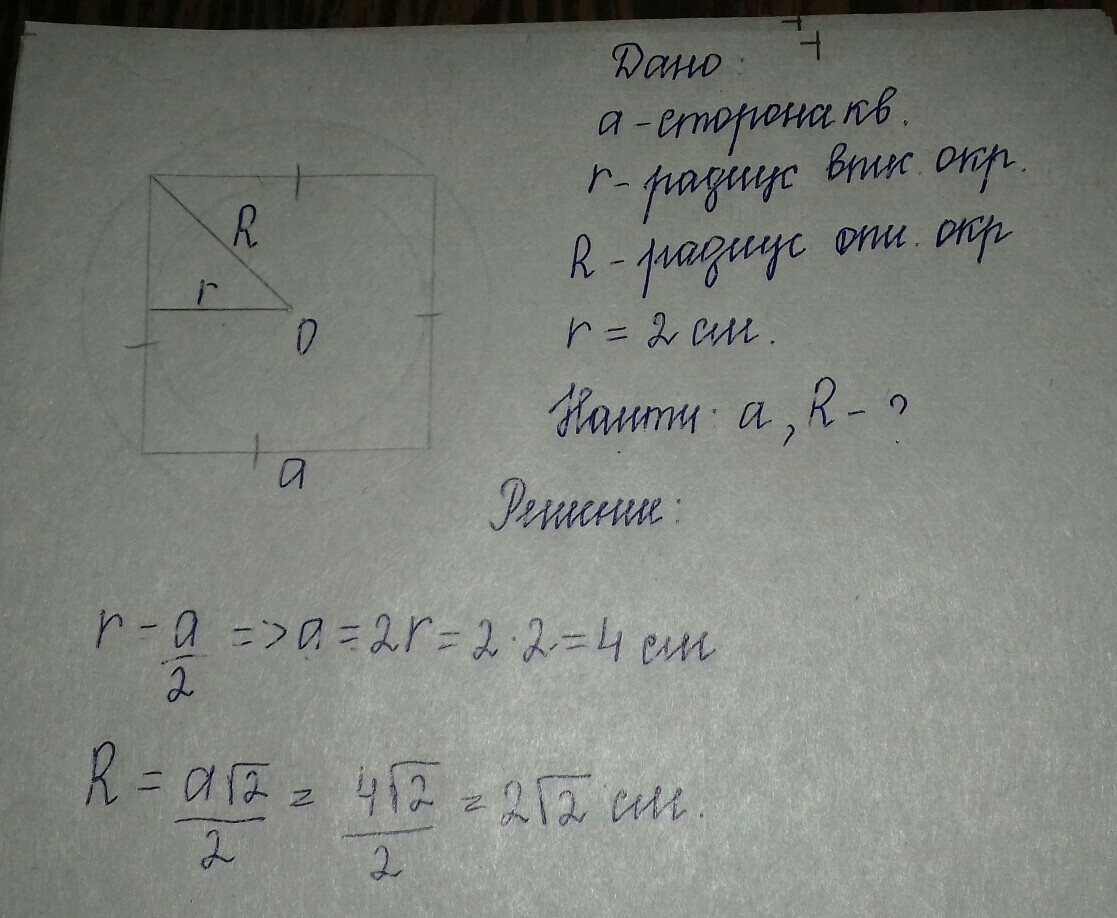 Дано:
a - сторона кв.
r - радиус впис. окр.
R - радиус опи. окр
r = 2 см.
Найти: a, R - ?
R
r
O
a
Решение:
r - a/2 => a = 2r = 2·2 = 4 см
R = a√2/2 = 4√2/2 = 2√2 см.